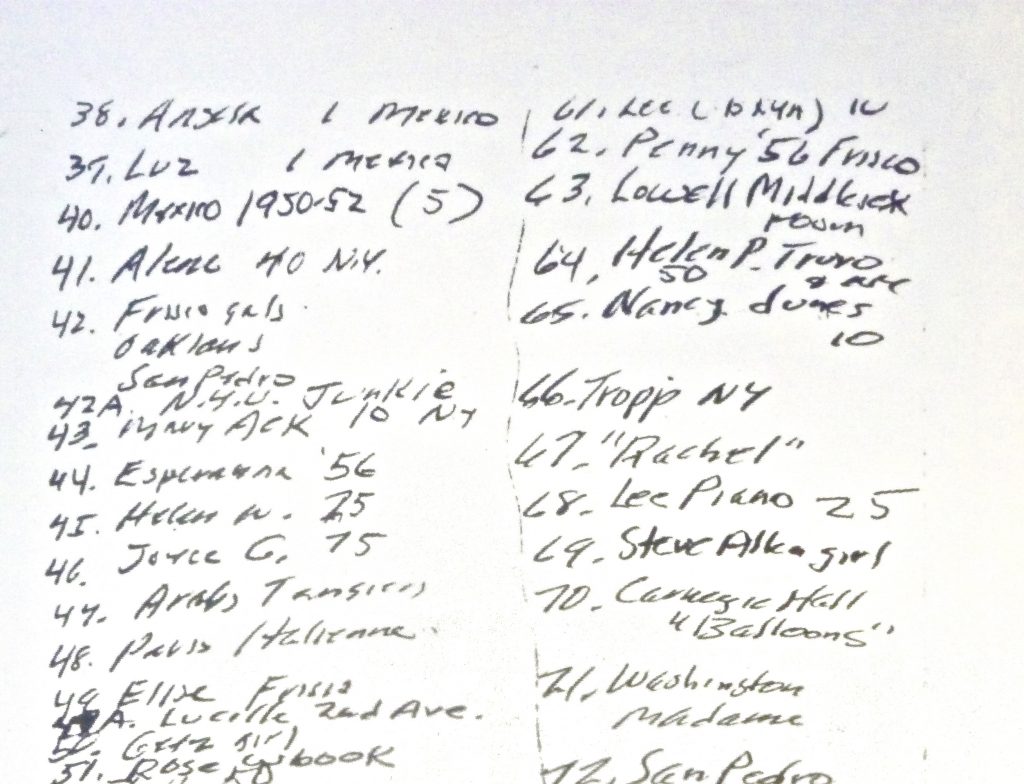 38. Angela 1 Mexico
39. Luz 1 Mexico
40. Mexico 1950-52 (5)
41. Alene 40 N.Y.
42. Frisco gals
Oaklands
San Pedro
42A. N.Y.U. Junkie
43. Mary Ack 10 NY
44. Esperanza '56
45. Helen W. 25
46. Joyce G. 75
47. Arabs Tangiers
48. Paris Italienne
49. Ellise Frisco
A. Lucille 2nd Ave.
50. girl
51. Rose
50
61. Lee (bklyn) 10
62. Penny '56 Frisco
63. Lowell
room
64. Helen P. Truro
50
65. Nancy dunes
10
66. Tropp NY
67. "Rachel"
68. Lee Piano 25
69. Steve girl
70. Carnegie Hall
"Balloons"
71. Washington
Madame
72. San Pedro